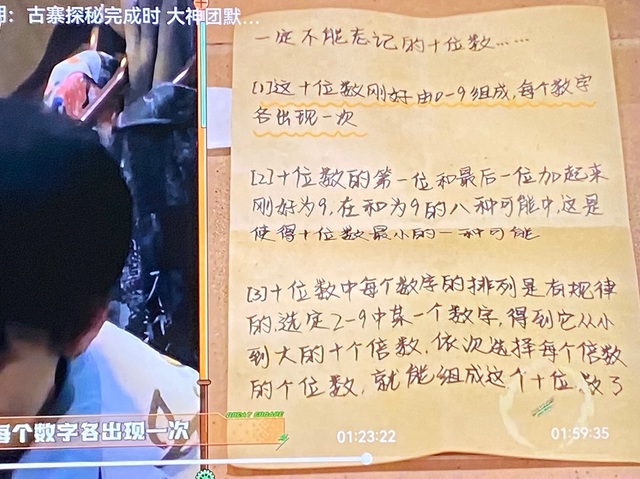 古寨探秘完成时 大神团默...
一定不能忘记的十位数……
[1]这十位数刚好由0-9组成,每个数字
各出现一次
[2]十位数的第一位和最后一位加起来
刚好为9,在和为9的八种可能中,这是
使得十位数最小的一种可能
[3]十位数中每个数字的排列是有规律
的,选定2-9中某一个数字,得到它从小
到大的十个倍数,依次选择每个倍数
的个位数,就能组成这个十位数了
每个数字各出现一次
01:23:22
01:59:35